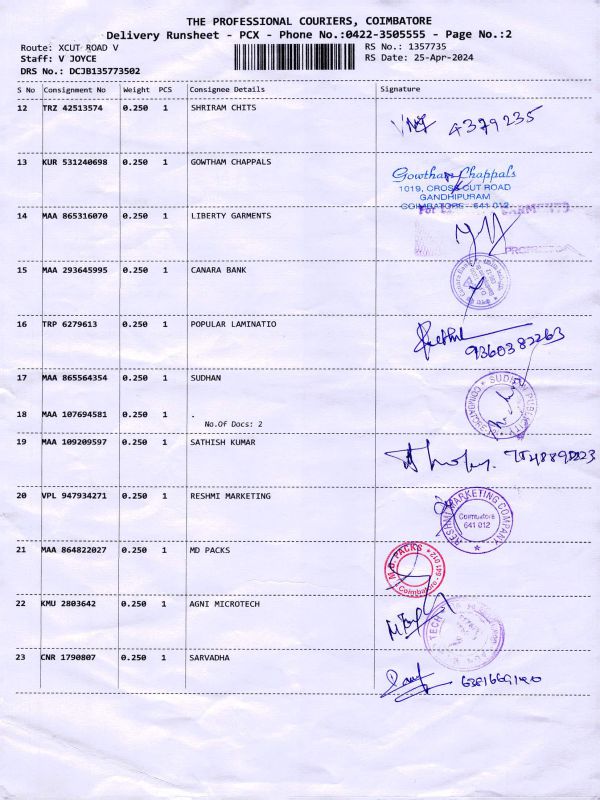 THE PROFESSIONAL COURIERS, COIMBATORE
Delivery Runsheet - PCX - Phone No.:0422-3505555 - Page No.:2
Route: XCUT ROAD V
RS No.: 1357735
Staff: V JOYCE
RS Date: 25-Apr-2024
DRS No.: DCJB135773502
S No Consignment No Weight PCS Consignee Details Signature
12 TRZ 42513574 0.250 1 SHRIRAM CHITS
4379235
13 KUR 531240698 0.250 1 GOWTHAM CHAPPALS
Gowtham Chappals
1019, CROSS CUT ROAD
GANDHIPURAM
COIMBATORE - 641 012
14 MAA 865316070 0.250 1 LIBERTY GARMENTS
For
15 MAA 293645995 0.250 1 CANARA BANK
Canara Bank
16 TRP 6279613 0.250 1 POPULAR LAMINATIO
9360382263
17 MAA 865564354 0.250 1 SUDHAN
SUDHAN PUBLICITY
18 MAA 107694581 0.250 1 .
No.Of Docs: 2
19 MAA 109209597 0.250 1 SATHISH KUMAR
20 VPL 947934271 0.250 1 RESHMI MARKETING
RESHMI MARKETING COMPANY
Coimbatore
641 012
21 MAA 864822027 0.250 1 MD PACKS
M.D. PACKS
Coimbatore - 641 012
22 KMU 2803642 0.250 1 AGNI MICROTECH
TECH
23 CNR 1790807 0.250 1 SARVADHA